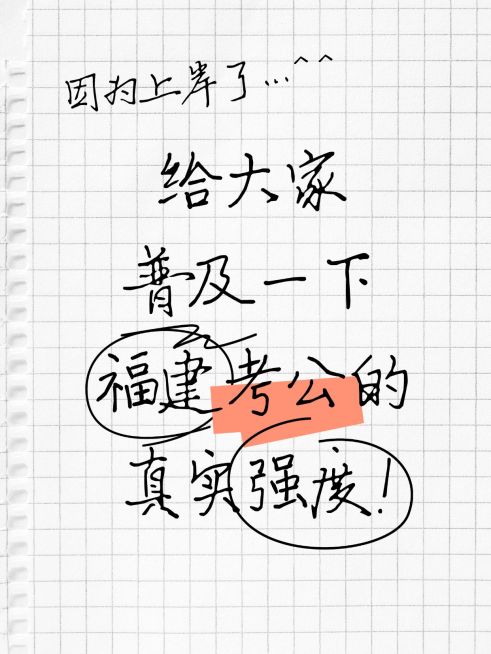 因为上岸了...^^
给大家
普及一下
福建考公的
真实强度!